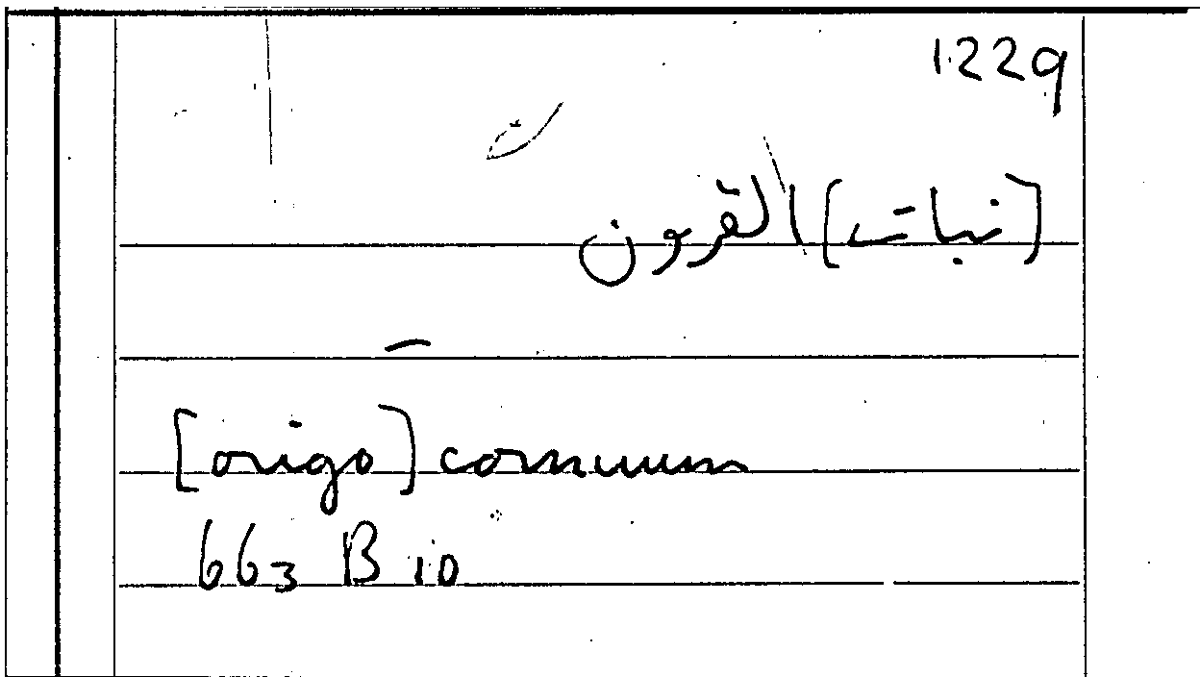 1229
ن
[نبات] القرون
–
[origo] cornuum
663 B 10